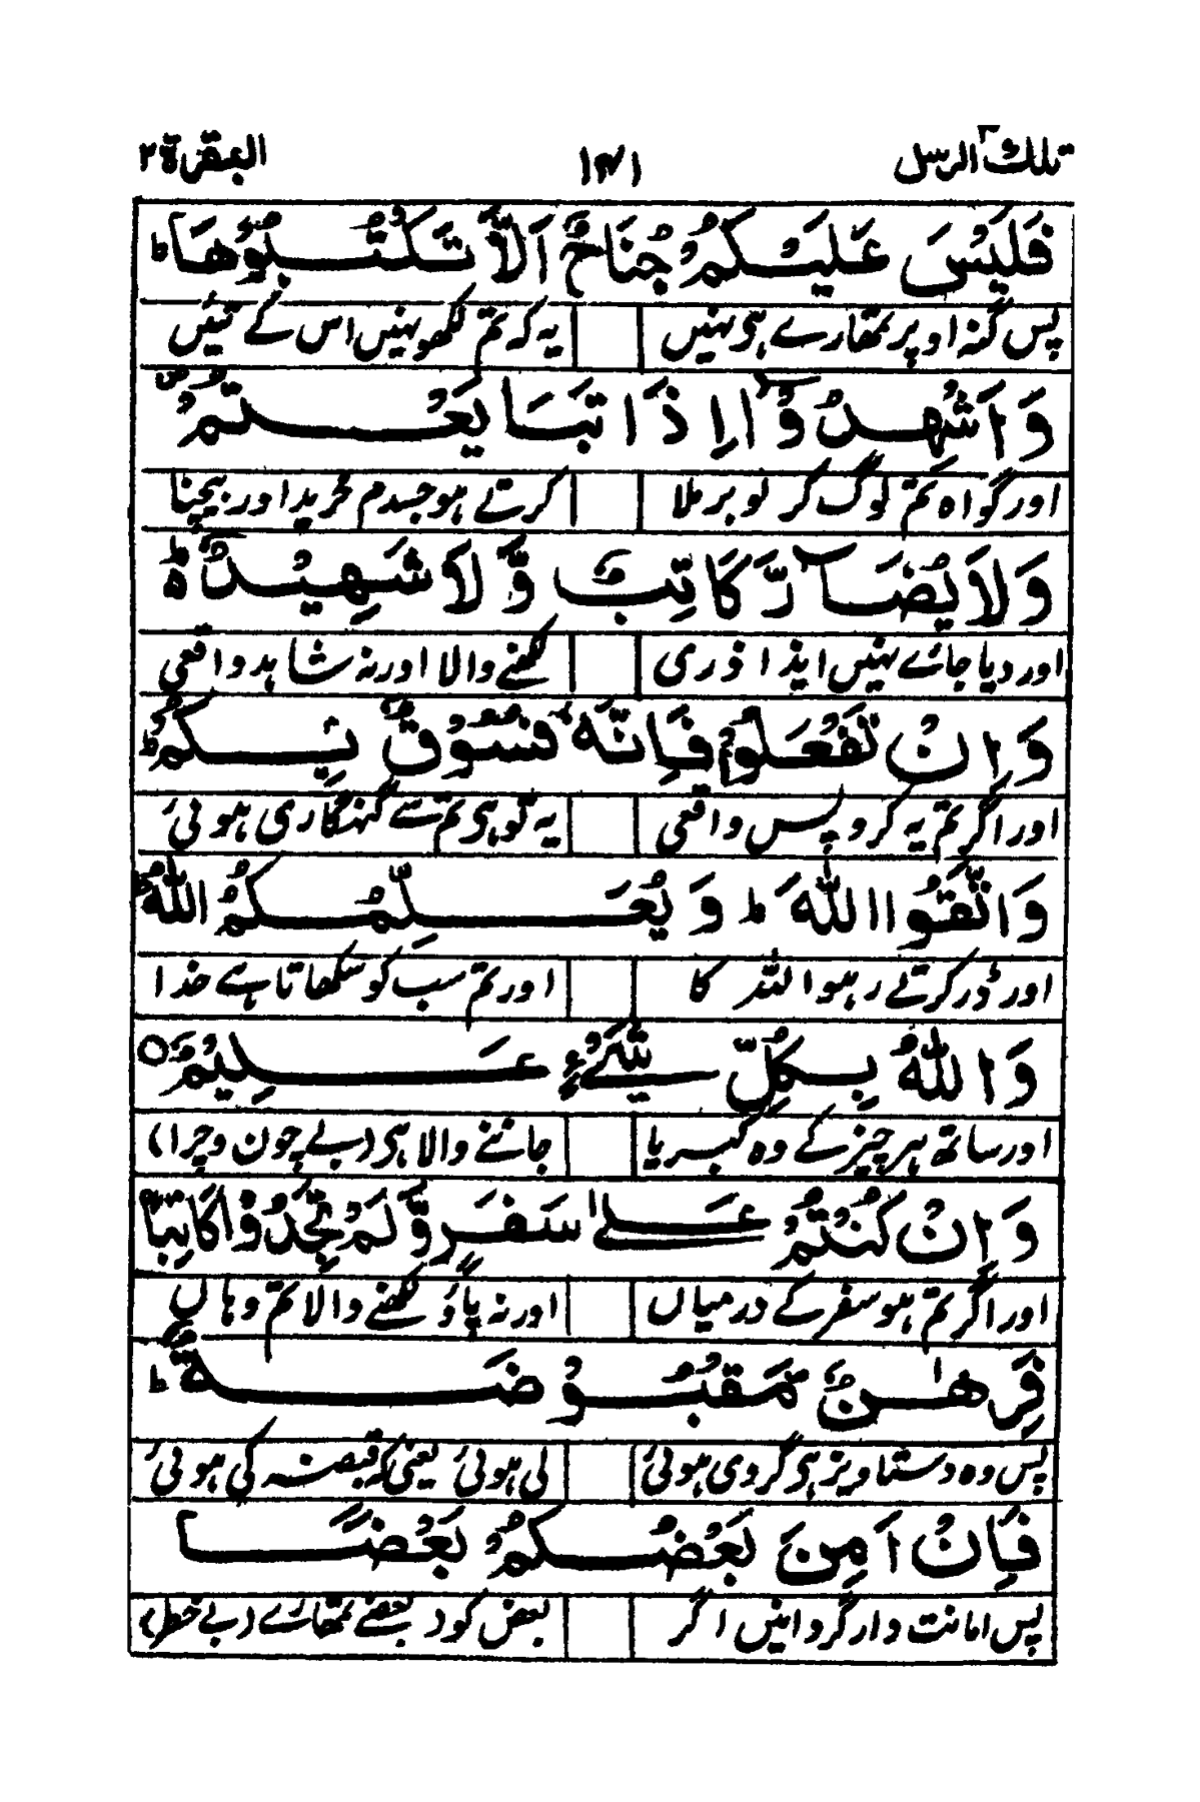 تلك الرسل ٣ ١٤١ البقرة ٢
فَلَيْسَ عَلَيْكُمْ جُنَاحٌ اَلَّا تَكْتُبُوْهَا ؕ
پس گنہ اوپر تمھارے ہی نہیں یہ کہ تم لکھو نہیں اس کے تئیں
وَ اَشْهِدُوْۤا اِذَا تَبَايَعْتُمْ ۪
اور گواہ تم لوگ کر لو برملا کرتے ہو جسدم خرید اور بیچنا
وَ لَا يُضَآرَّ كَاتِبٌ وَّ لَا شَهِيْدٌ ؕ۬
اور دیا جائے نہیں ایذا ذری لکھنے والا اور نہ شاہد واقعی
وَ اِنْ تَفْعَلُوْا فَاِنَّهٗ فُسُوْقٌۢ بِكُمْ ؕ
اور اگر تم یہ کرو پس واقعی یہ تو ہی تم سے گنہگاری ہوئی
وَ اتَّقُوا اللّٰهَ ؕ وَ يُعَلِّمُكُمُ اللّٰهُ ؕ
اور ڈر کرتے رہو اللہ کا اور تم سب کو سکھاتا ہے خدا
وَ اللّٰهُ بِكُلِّ شَيْءٍ عَلِيْمٌ ۝
اور ساتھ ہر چیز کے وہ کبریا جاننے والا ہی (بے چون وچرا)
وَ اِنْ كُنْتُمْ عَلٰى سَفَرٍ وَّ لَمْ تَجِدُوْا كَاتِبًا
اور اگر تم ہو سفر کے درمیاں اور نہ پاؤ لکھنے والا تم وہاں
فَرِهٰنٌ مَّقْبُوْضَةٌ ؕ
پس وہ دستاویز ہی گروی ہوئی لی ہوئی یعنی کہ قبضہ کی ہوئی
فَاِنْ اَمِنَ بَعْضُكُمْ بَعْضًا
پس امانت دار گردانیں اگر بعض کو بعضے تمھارے (بے خطر)